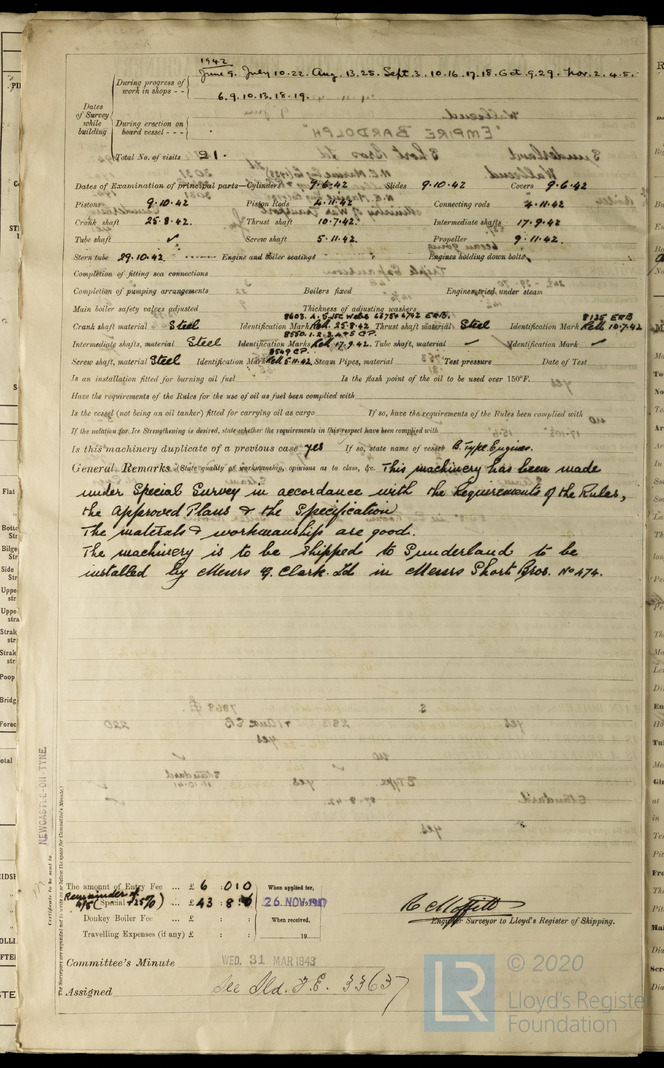 1942
June 9. July 10. 22. Aug. 13. 25. Sept. 3. 10. 16. 17. 18. Oct. 9. 29. Nov. 2. 4. 5.
During progress of work in shops - -
6. 9. 10. 13. 18. 19.
Dates of Survey while building
During erection on board vessel - - -
Total No. of visits 21.
Dates of Examination of principal parts—Cylinders 9.6.42 Slides 9.10.42 Covers 9.6.42
Pistons 9.10.42 Piston Rods 4.11.42 Connecting rods 4.11.42
Crank shaft 25.8.42. Thrust shaft 10.7.42. Intermediate shafts 17.9.42
Tube shaft ✓ Screw shaft 5.11.42. Propeller 9.11.42.
Stern tube 29.10.42. Engine and boiler seatings Engines holding down bolts
Completion of fitting sea connections
Completion of pumping arrangements Boilers fixed Engines tried under steam
Main boiler safety valves adjusted Thickness of adjusting washers
Crank shaft material Steel Identification Mark 25.8.42 Thrust shaft material Steel Identification Mark 10.7.42
Intermediate shafts, material Steel Identification Marks 17.9.42. Tube shaft, material ✓ Identification Mark ✓
Screw shaft, material Steel Identification Mark 5.11.42 Steam Pipes, material Test pressure Date of Test
Is an installation fitted for burning oil fuel Is the flash point of the oil to be used over 150°F.
Have the requirements of the Rules for the use of oil as fuel been complied with
Is the vessel (not being an oil tanker) fitted for carrying oil as cargo If so, have the requirements of the Rules been complied with
If the notation for Ice Strengthening is desired, state whether the requirements in this respect have been complied with
Is this machinery duplicate of a previous case yes If so, state name of vessel B. Type Engines.
General Remarks (State quality of workmanship, opinions as to class, &c. This machinery has been made
under Special Survey in accordance with the Requirements of the Rules,
the approved Plans & the Specification
The materials & workmanship are good.
The machinery is to be shipped to Sunderland to be
installed by Messrs G. Clark Ltd in Messrs Short Bros. No 474.
NEWCASTLE-ON-TYNE
Certificate to be sent to
The amount of Entry Fee ... £ 6 : 0 : 0
When applied for,
Remainder of
4/5 Special + 25%) ... £ 43 : 8 :
26 NOV 1942
Donkey Boiler Fee ... £ : :
When received,
Travelling Expenses (if any) £ : :
19
R C Moffitt
Engineer Surveyor to Lloyd's Register of Shipping.
Committee's Minute WED. 31 MAR 1943
Assigned See Sld. F.E. 33637
LR
© 2020
Lloyd's Register
Foundation